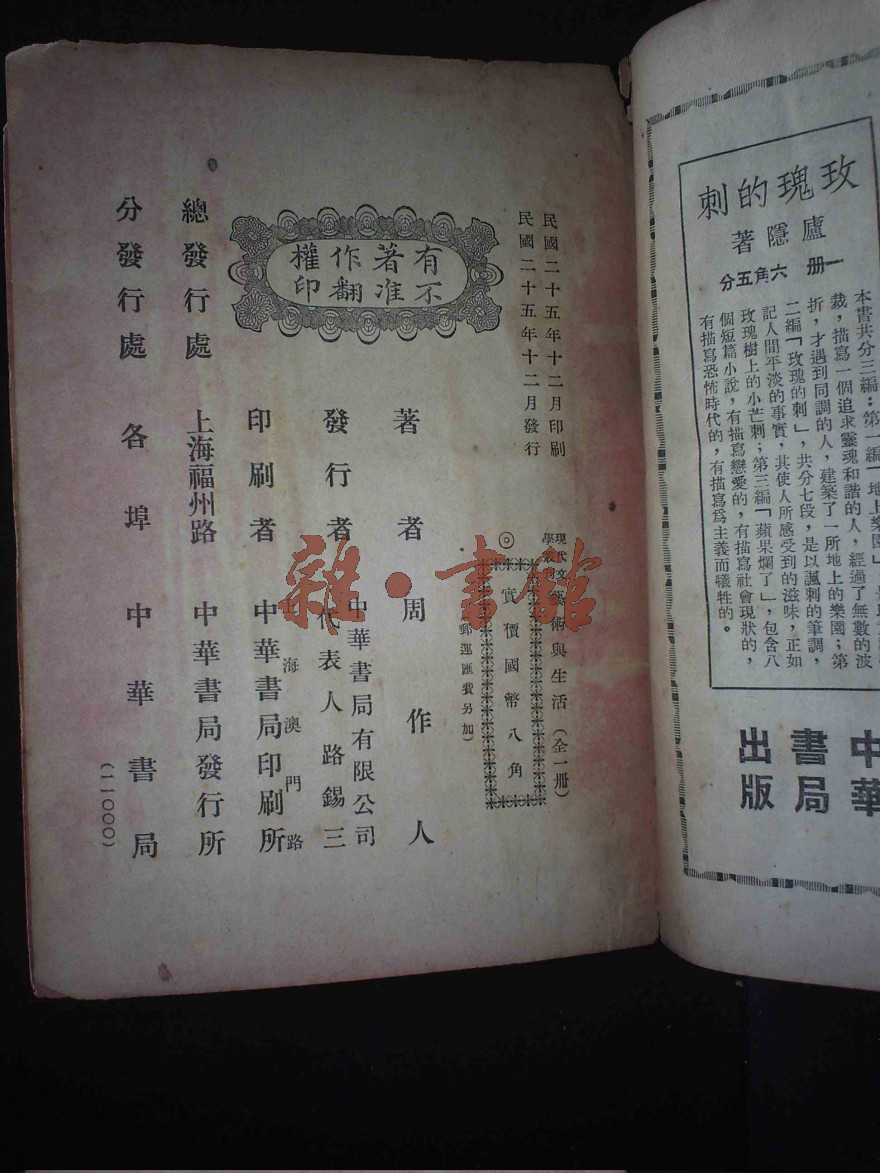 玫瑰的刺
廬隱著
一冊 六角五分
本書共分三編：第一編「地上樂園」，
裁，描寫一個追求靈魂和諧的人，經過了無數的波
折，才遇到同調的人，建築了一所地上的樂園；第
二編「玫瑰的刺」，共分七段，是以諷刺的筆調，
記人間平淡的事實，其使人所感受到的滋味，正如
玫瑰樹上的小芒刺；第三編「蘋果爛了」，包含八
個短篇小說，有描寫戀愛的，有描寫社會現狀的，
有描寫恐怖時代的，有描寫為主義而犧牲的。
中華
書局
出版
民國二十五年十二月印刷
民國二十五年十二月發行
現代文學叢刊 藝術與生活（全一冊）
◎實價國幣八角
郵運匯費另加）
有著作權
不准翻印
著者 周作人
發行者 中華書局有限公司
代表人 路錫三
印刷者 上海澳門路
中華書局印刷所
總發行處 上海福州路 中華書局發行所
分發行處 各埠 中華書局
（一一〇〇〇）
雜·書館